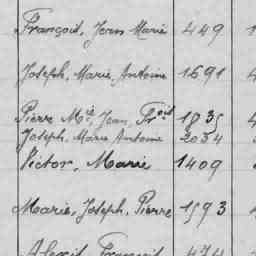 François, Jean Marie 449
Joseph, Marie, Antoine 1691
Pierre Mie, Jean, Frois 1935
Joseph, Marie Antoine 2034
Victor, Marie 1409
Marie, Joseph, Pierre 1593
Alexis, François 474